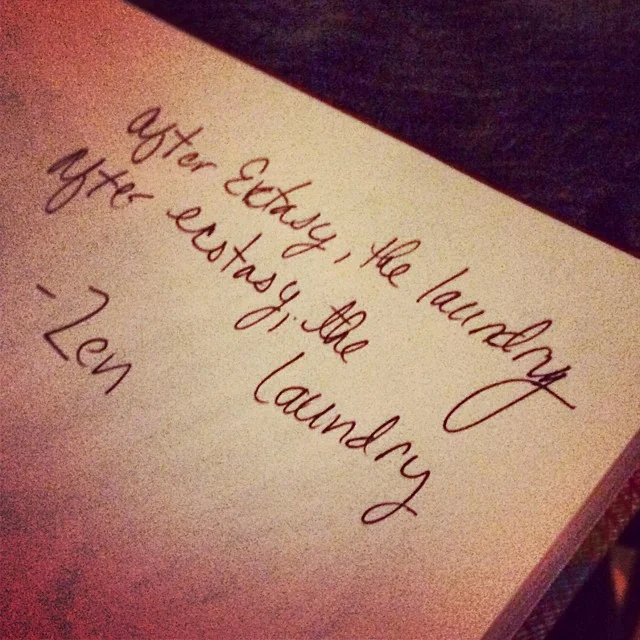 after Extasy, the laundry
after ecstasy, the
laundry
-Zen